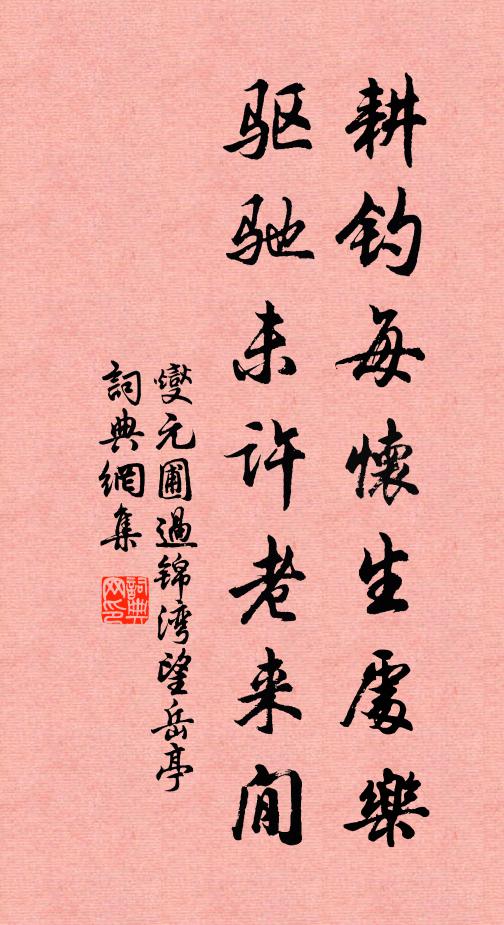 耕钓每懷生處樂
驱驰未许老来闲
燮元圃過锦湾望岳亭
詞典網集
詞典网印